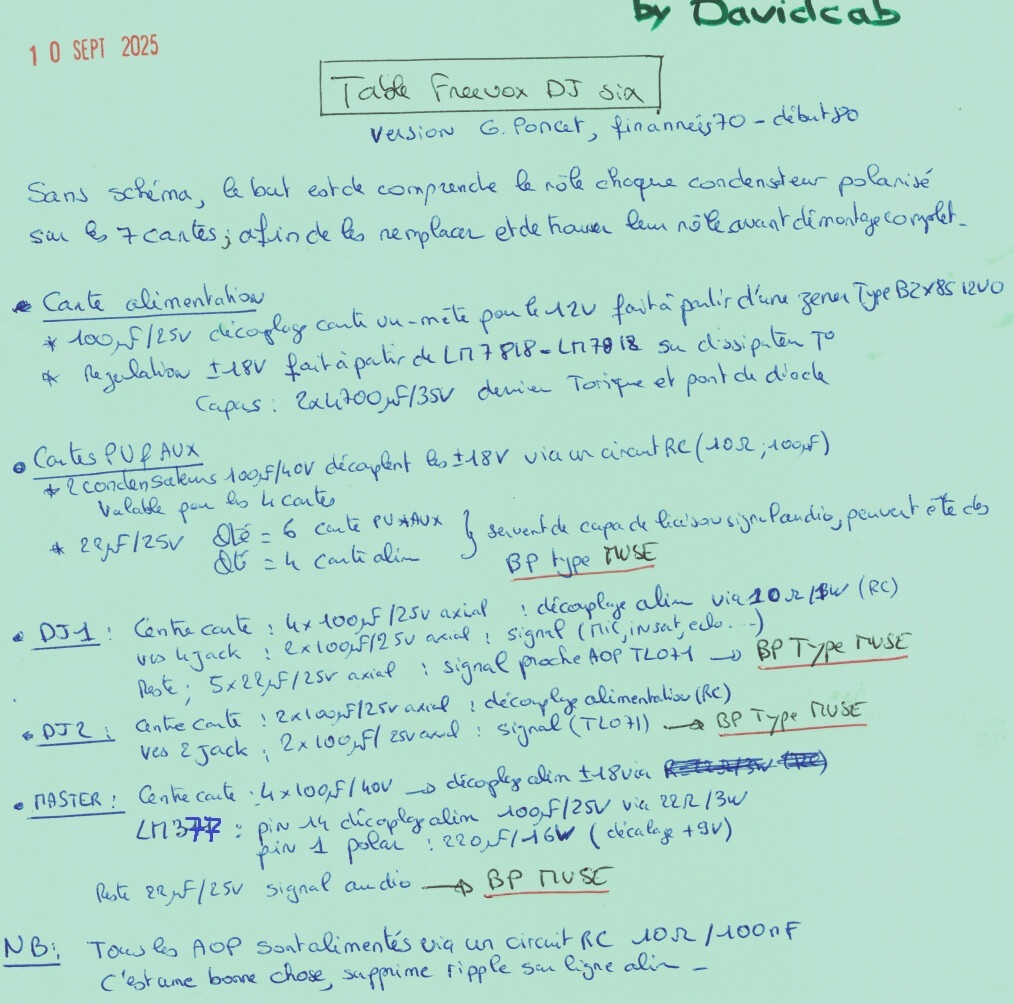 by Davidcab
10 SEPT 2025
Table Freevox DJ six
Version G. Poncet, fin années 70 - début 80
Sans schéma, le but est de comprendre le rôle chaque condensateur polarisé
sur les 7 cartes; afin de les remplacer et de trouver leur rôle avant démontage complet.
• Carte alimentation
* 100µF/25V découplage carte vu-mètre pour le 12V fait à partir d'une zener Type BZX85 12V0
* Regulation ±18V fait à partir de LM7818-LM7918 sur dissipateur T°
Capas : 2x4700µF/35V derrier Torique et pont de diode
• Cartes PU & AUX
* 2 condensateurs 100µF/40V découplent les ±18V via un circuit RC (10Ω ; 100µF)
Valable pour les 4 cartes
* 22µF/25V Qté = 6 carte PU * AUX } servent de capa de liaison signal audio, peuvent être des
Qté = 4 carte alim BP type MUSE
• DJ1 : Centre carte : 4x100µF/25V axial : découplage alim via 10Ω/3W (RC)
vers 4 jack : 2x100µF/25V axial : signal (Mic, insat, echo....)
Reste ; 5x22µF/25V axial : signal proche AOP TL071 → BP Type MUSE
• DJ2 : Centre carte : 2x100µF/25V axial : découplage alimentation (RC)
vers 2 jack : 2x100µF/25V axial : signal (TL071) → BP Type MUSE
• MASTER : Centre carte : 4x100µF/40V → découplage alim ±18 via
LM377 : pin 14 découplage alim 100µF/25V via 22Ω/3W
pin 1 polar : 220µF/16V (décalage +9V)
Reste 22µF/25V signal audio → BP MUSE
NB : Tous les AOP sont alimentés via un circuit RC 10Ω/100nF
C'est une bonne chose, supprime ripple sur ligne alim -